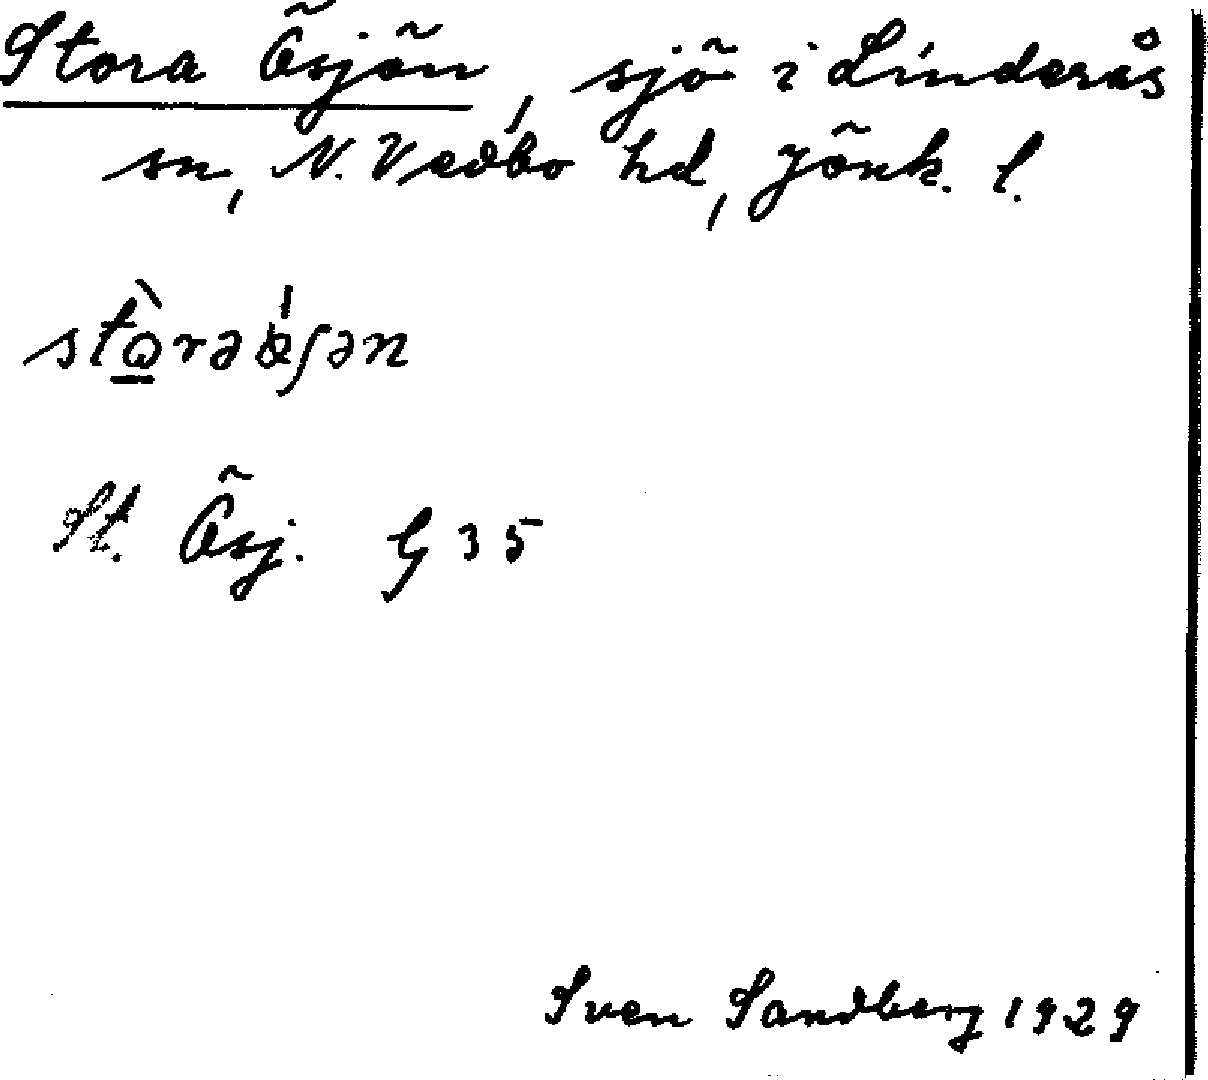 Stora Ösjön, sjö i Linderås
sn, N. Vedbo hd, Jönk. l.
St. Ösj. G 35
Sven Sandberg 1929